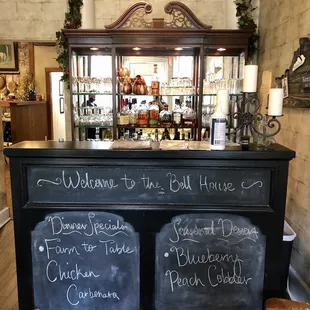 ~ Welcome to the Bell House ~
Dinner Specials
• Farm to Table
Chicken
Carbonara
Seasonal Desserts
• Blueberry
Peach Cobbler